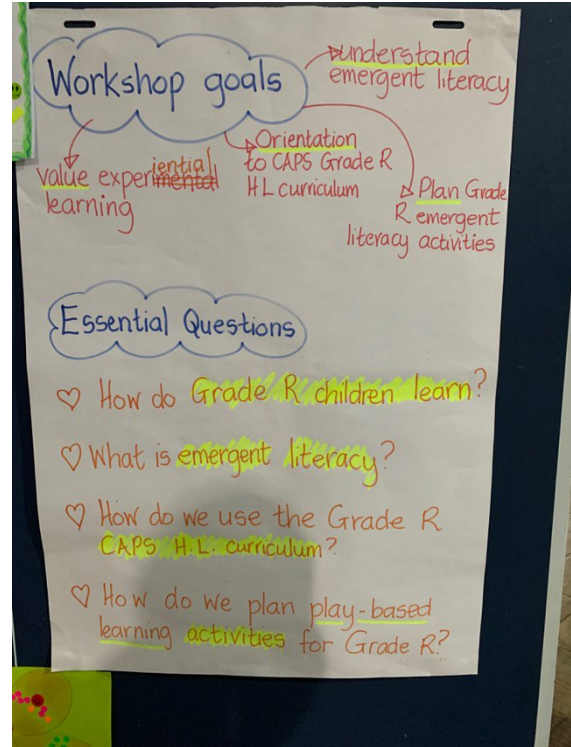 Workshop goals
understand
emergent literacy
Orientation
to CAPS Grade R
HL curriculum
value experiential
learning
Plan Grade
R emergent
literacy activities
Essential Questions
♡ How do Grade R children learn?
♡ What is emergent literacy?
♡ How do we use the Grade R
CAPS H.L. curriculum?
♡ How do we plan play-based
learning activities for Grade R?